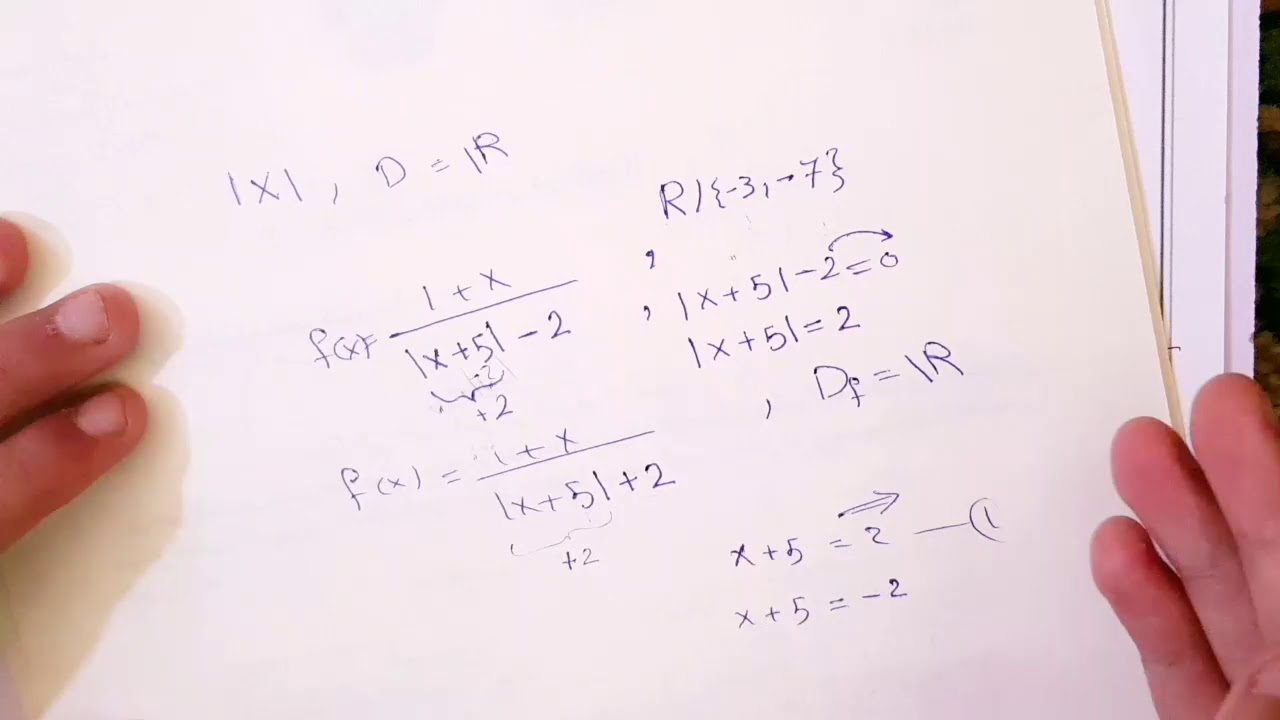 |X| , D = |R
R \ {-3, -7}
f(x) = 1 + x / |x+5| - 2 , |x+5| - 2 = 0
-2
+2
|x+5| = 2
, Df = |R
f(x) = 1 + x / |x+5| + 2
+2
x + 5 = 2 — (1
x + 5 = -2